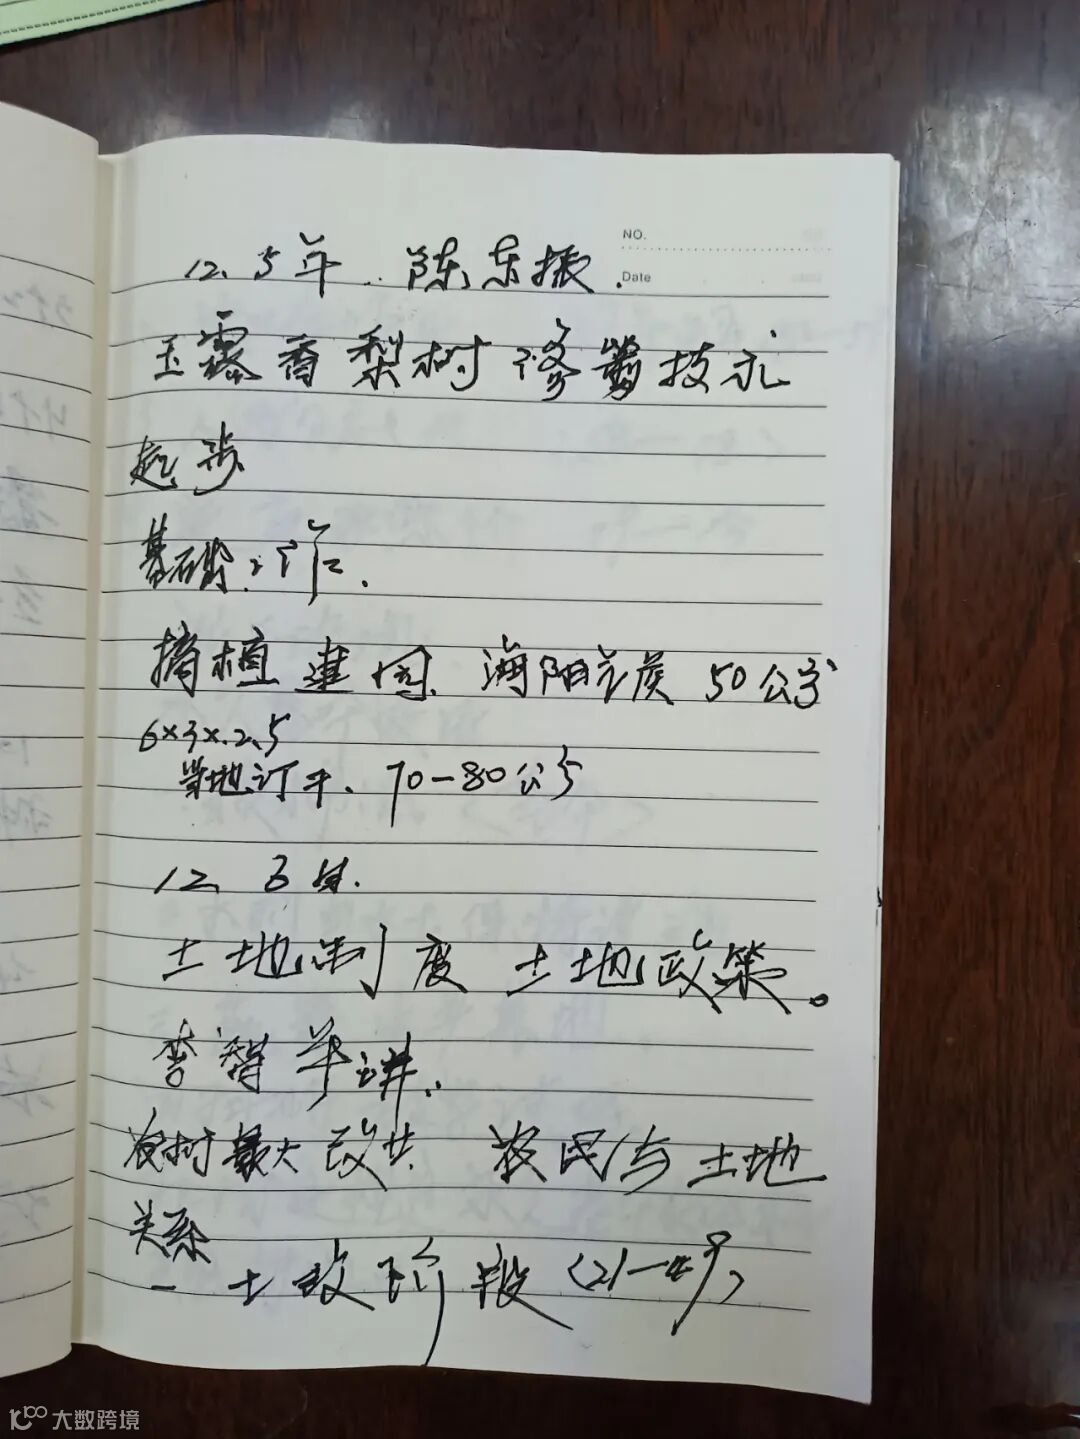 NO.
12、5年 陈东振.
Date
玉露香梨树修剪技术
起步
基础:
植建园. 海阳 50公
6×3×2.5
当地订干、70-80公分
12、6日.
土地制度 土地政策。
李智华讲.
农村最大改 农民与土地
关系
一 土改阶段(21-49)
大数跨境